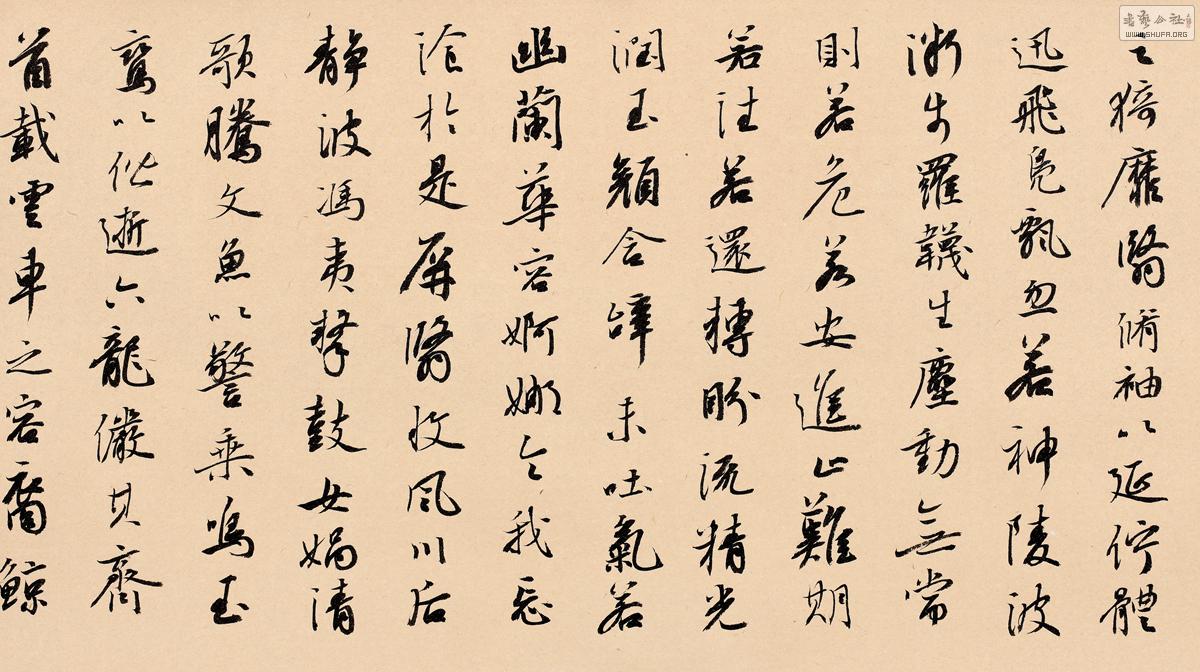 之猗靡翳脩袖以延佇體
迅飛鳧飄忽若神陵波
微步羅韈生塵動無常
則若危若安進止難期
若往若還轉眄流精光
潤玉顏含辭未吐氣若
幽蘭華容婀娜令我忘
飡於是屏翳收風川后
靜波馮夷擊鼓女媧清
歌騰文魚以警乘鳴玉
鸞以偕逝六龍儼其齊
首載雲車之容裔鯨
書藝公社
WWW.SHUFA.ORG